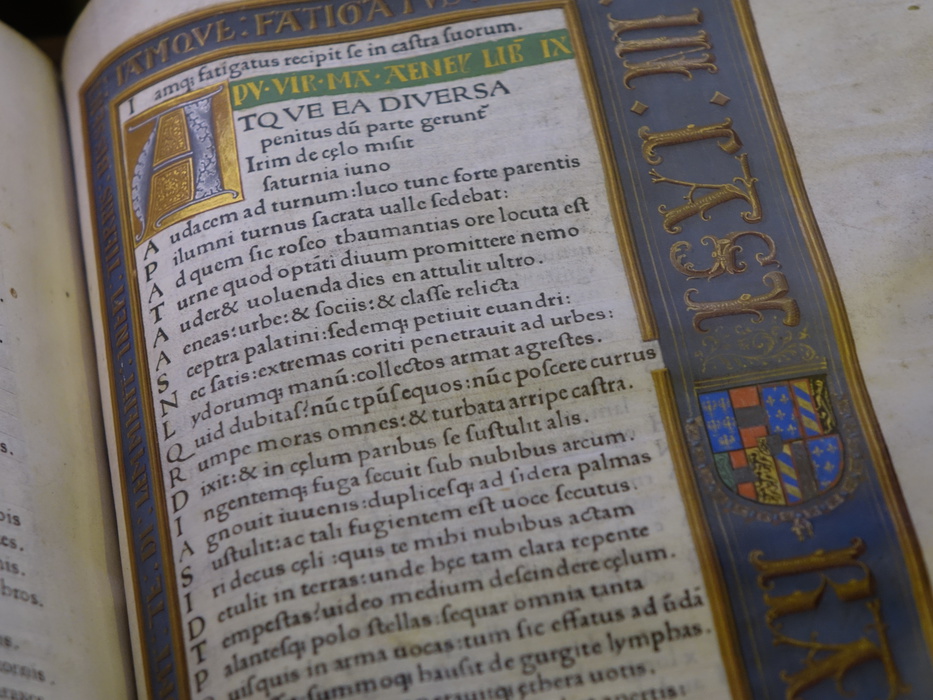 IAMQVE : FATIGATVS
I amq; fatigatus recipit se in castra suorum.
PV · VIR · MA · AENEI LIB IX
A TQVE EA DIVERSA
penitus dū parte gerunt̄
Irim de cęlo misit
saturnia iuno
A udacem ad turnum: luco tunc forte parentis
P ilumni turnus sacrata ualle sedebat:
A d quem sic roseo thaumantias ore locuta est
T urne quod optāti diuum promittere nemo
A uder& uoluenda dies en attulit ultro.
A eneas: urbe: & sociis: & classe relicta
S ceptra palatini: sedemq; petiuit euandri:
N ec satis: extremas coriti penetrauit ad urbes:
L ydorumq; manū: collectos armat agrestes.
Q uid dubitas? nūc tp̄us equos: nūc poscere currus
R umpe moras omnes: & turbata arripe castra.
D ixit: & in cęlum paribus se sustulit alis.
I ngentemq; fuga secuit sub nubibus arcum.
A gnouit iuuenis: duplicesq; ad sidera palmas
S ustulit: ac tali fugientem est uoce secutus.
I ri decus cęli: quis te mihi nubibus actam
D etulit in terras: unde hęc tam clara repente
T empestas? uideo medium descindere cęlum.
P alantesq; polo stellas: sequar omnia tanta
uisquis in arma uocas: tum sic effatus ad ūdā
summoq; hausit de gurgite lymphas.
ęthera uotis.
IN · CAST
RA